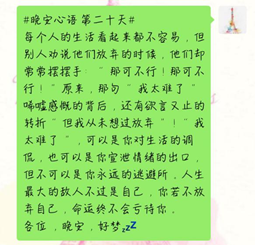 #晚安心语 第二十天#
每个人的生活看起来都不容易，但
别人劝说他们放弃的时候，他们却
常常摆摆手：“那可不行！那可不
行！”原来，那句“我太难了”
唏嘘感慨的背后，还有欲言又止的
转折“但我从未想过放弃”！“我
太难了”，可以是你对生活的调
侃，也可以是你宣泄情绪的出口，
但不可以是你永远的逃避所，人生
最大的敌人不过是自己，你若不放
弃自己，命运终不会亏待你。
各位，晚安，好梦💤